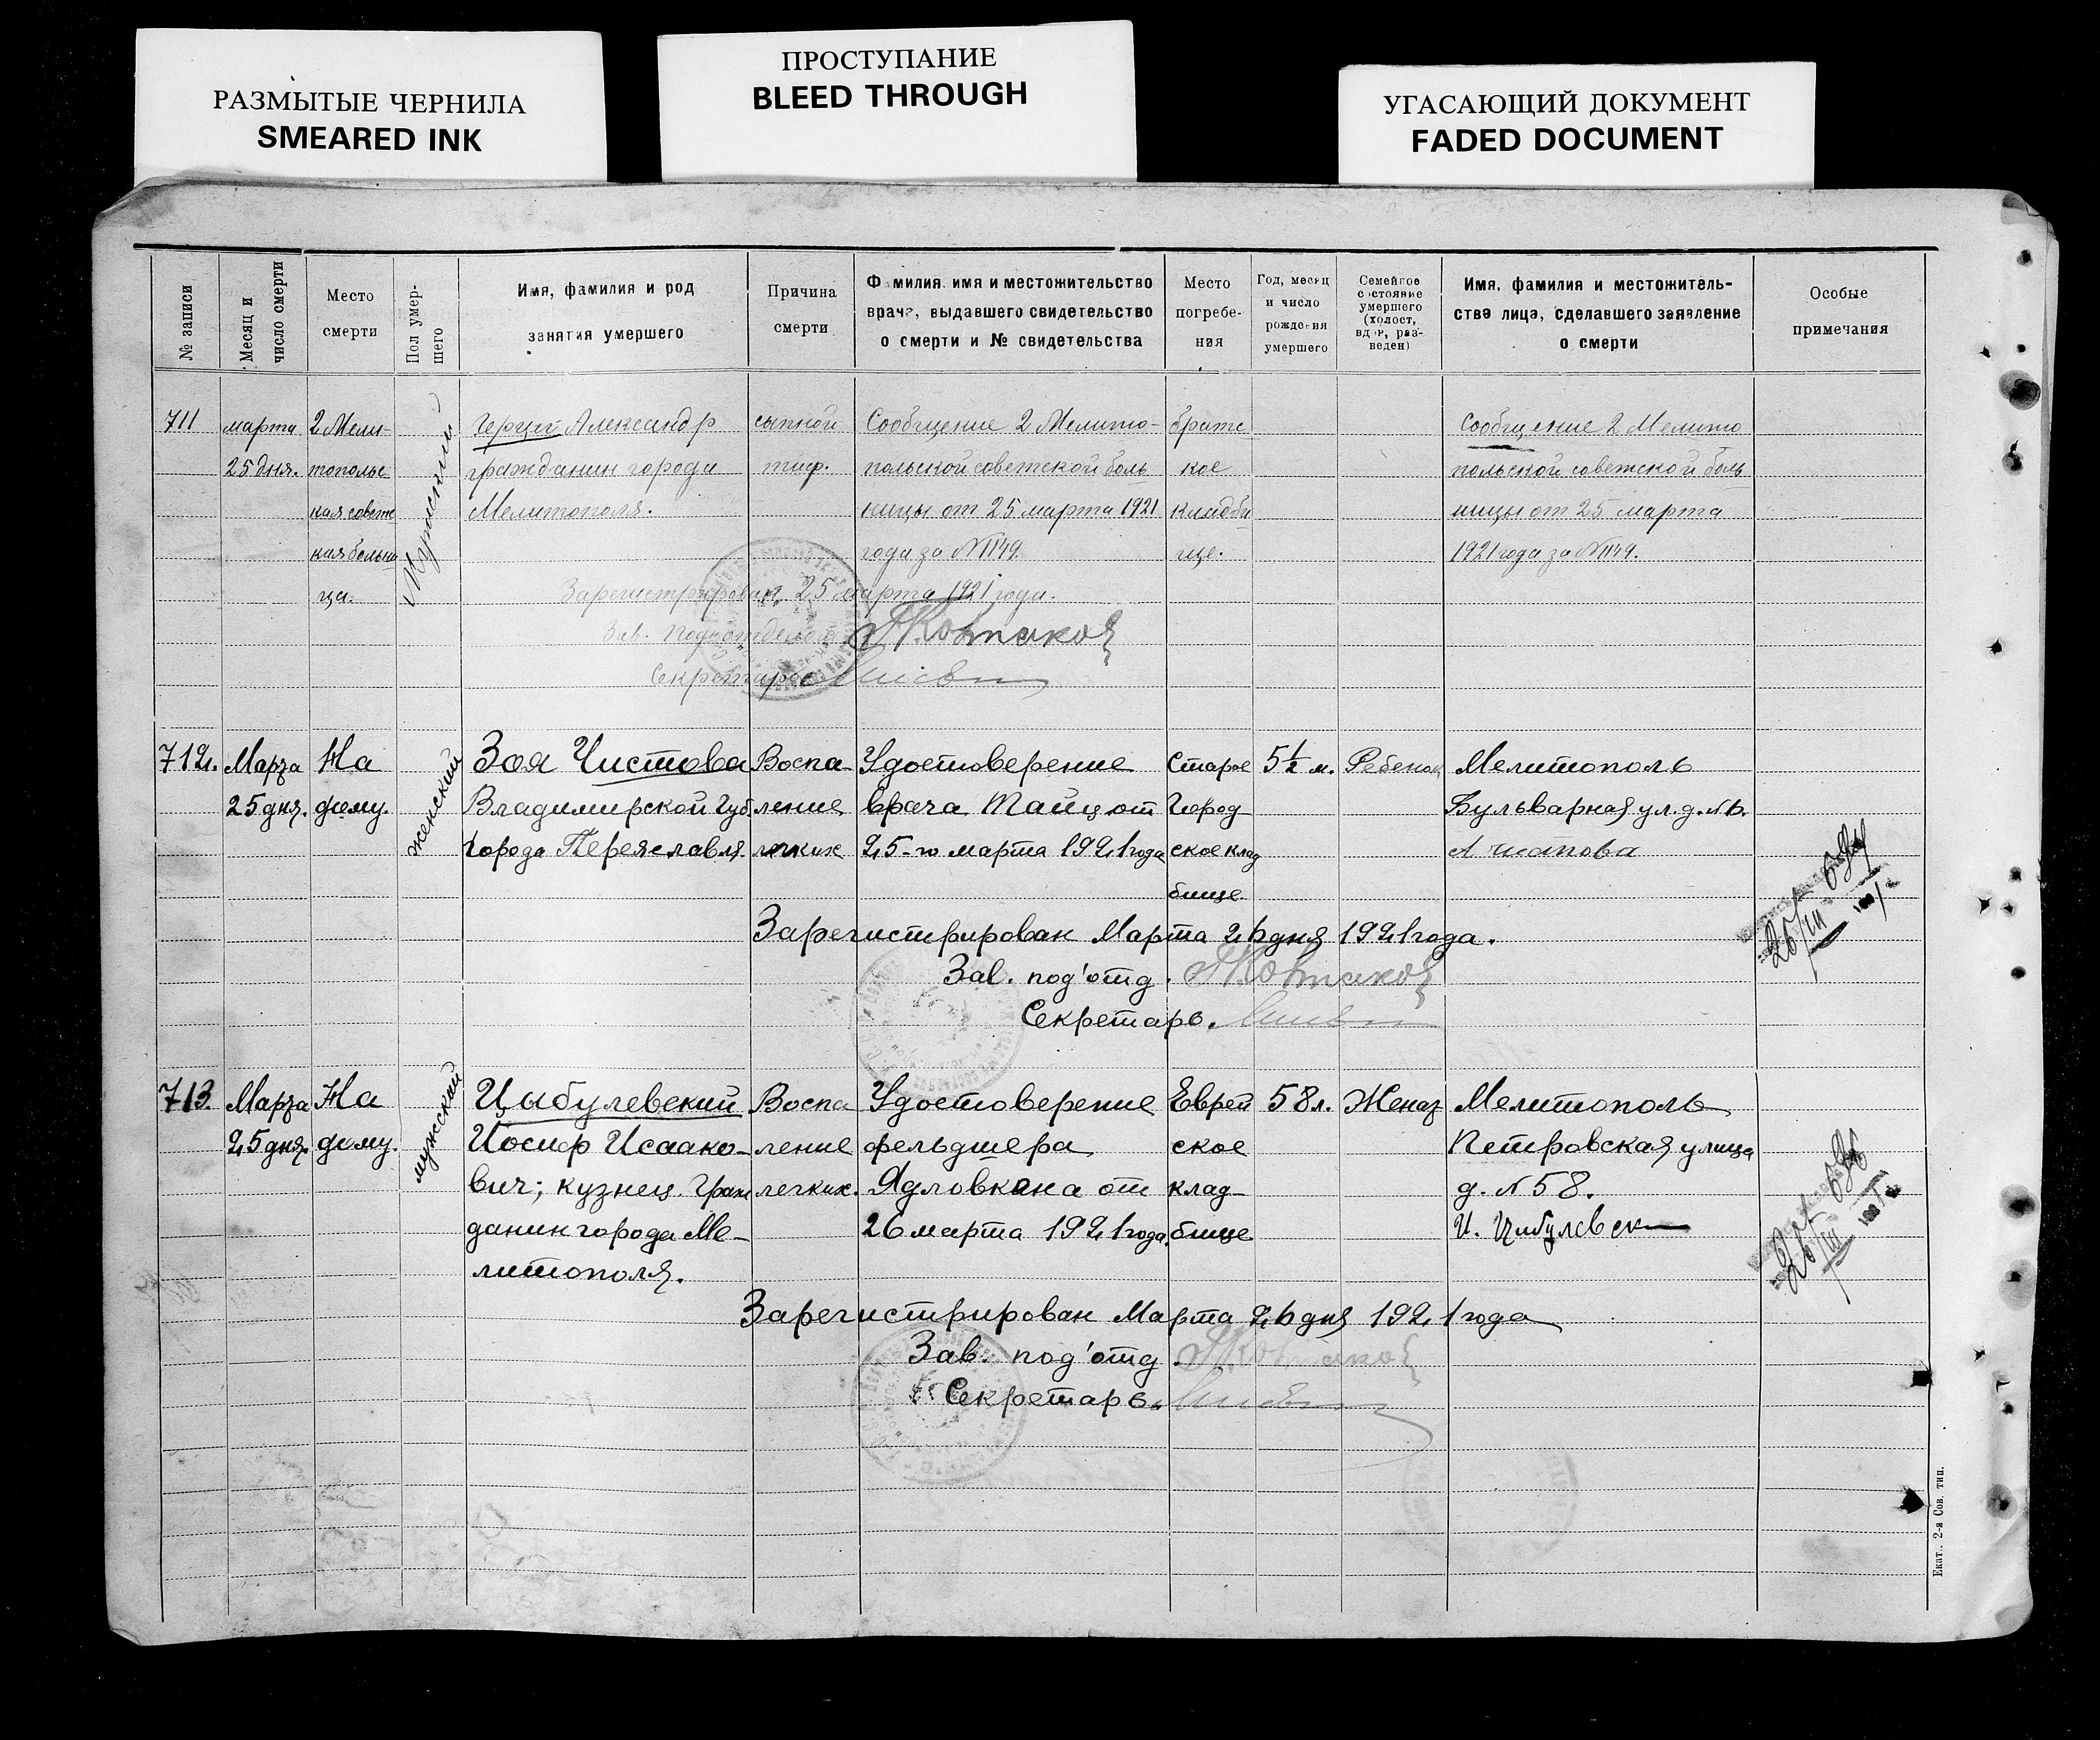 РАЗМЫТЫЕ ЧЕРНИЛА
SMEARED INK
ПРОСТУПАНИЕ
BLEED THROUGH
УГАСАЮЩИЙ ДОКУМЕНТ
FADED DOCUMENT
№ записи
Месяц и
число смерти
Место
смерти
Пол умер-
шего
Имя, фамилия и род
занятия умершего
Причина
смерти
Фамилия имя и местожительство
врача, выдавшего свидетельство
о смерти и № свидетельства
Место
погребе-
ния
Год, месяц
и число
рождения
умершего
Семейное
состояние
умершего
(холост,
вдов, раз-
веден)
Имя, фамилия и местожитель-
ство лица, сделавшего заявление
о смерти
Особые
примечания
711
марта
25 дня.
2 Мели-
топольс
кая советс
кая больни
ца.
Мужской
Александр
гражданин города
Мелитополя.
сыпной
тиф.
Сообщение 2 Мелито-
польской советской боль
ницы от 25 марта 1921
года за № 1149.
братс
кое
кладби
ще.
Сообщение 2 Мелито
польской советской боль
ницы от 25 марта
1921 года за № 1149.
Зарегистрирован 25 марта 1921 года.
Зав. Подотделом
Секретарь
712.
Марта
25 дня.
На
дому.
женский
Зоя Чистова
Владимирской Губ.
города Переяславля.
Воспа
ление
легких
Удостоверение
врача Тайц от
25-го марта 1921 года
Старое
Город
ское клад
бище.
5½ м.
Ребенок
Мелитополь
Бульварная ул. д. №
Зарегистрирован Марта 26 дня 1921 года.
Зав. под'отд.
Секретарь.
26/III
713.
Марта
25 дня.
На
дому.
мужской
Цыбулевский
Иосиф Исаако-
вич; кузнец. Граж
данин города Ме-
литополя.
Воспа
ление
легких.
Удостоверение
фельдшера
Ядловкина от
26 марта 1921 года.
Еврей
ское
клад-
бище
58 л.
Женат
Мелитополь
Петровская улица
д. № 58.
И. Цибулевск
Зарегистрирован Марта 26 дня 1921 года
Зав. под'отд.
Секретарь.
26/III
Екат., 2-я Сов. тип.